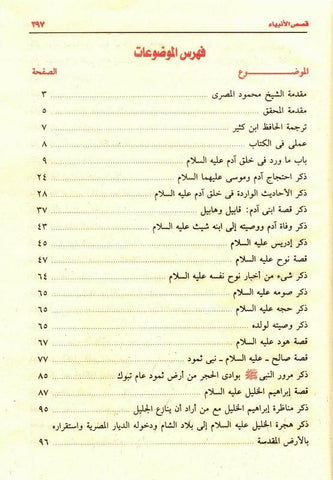 قصص الأنبياء ٢٩٧
فهرس الموضوعات
الموضوع الصفحة
مقدمة الشيخ محمود المصرى ٣
مقدمة المحقق ٥
ترجمة الحافظ ابن كثير ٧
عملى فى الكتاب ٨
باب ما ورد فى خلق آدم عليه السلام ٩
ذكر احتجاج آدم وموسى عليهما السلام ٢٤
ذكر الأحاديث الواردة فى خلق آدم عليه السلام ٢٨
ذكر قصة ابنى آدم: قابيل وهابيل ٣٧
ذكر وفاة آدم ووصيته إلى ابنه شيث عليه السلام ٤٣
ذكر إدريس عليه السلام ٤٥
قصة نوح عليه السلام ٤٧
ذكر شىء من أخبار نوح نفسه عليه السلام ٦٤
ذكر صومه عليه السلام ٦٥
ذكر حجه عليه السلام ٦٥
ذكر وصيته لولده ٦٥
قصة هود عليه السلام ٦٧
قصة صالح - عليه السلام - نبى ثمود ٧٧
ذكر مرور النبى ﷺ بوادى الحجر من أرض ثمود عام تبوك ٨٥
قصة إبراهيم الخليل عليه السلام ٨٧
ذكر مناظرة إبراهيم الخليل مع من أراد أن ينازع الجليل ٩٥
ذكر هجرة الخليل عليه السلام إلى بلاد الشام ودخوله الديار المصرية واستقراره
بالأرض المقدسة ٩٦